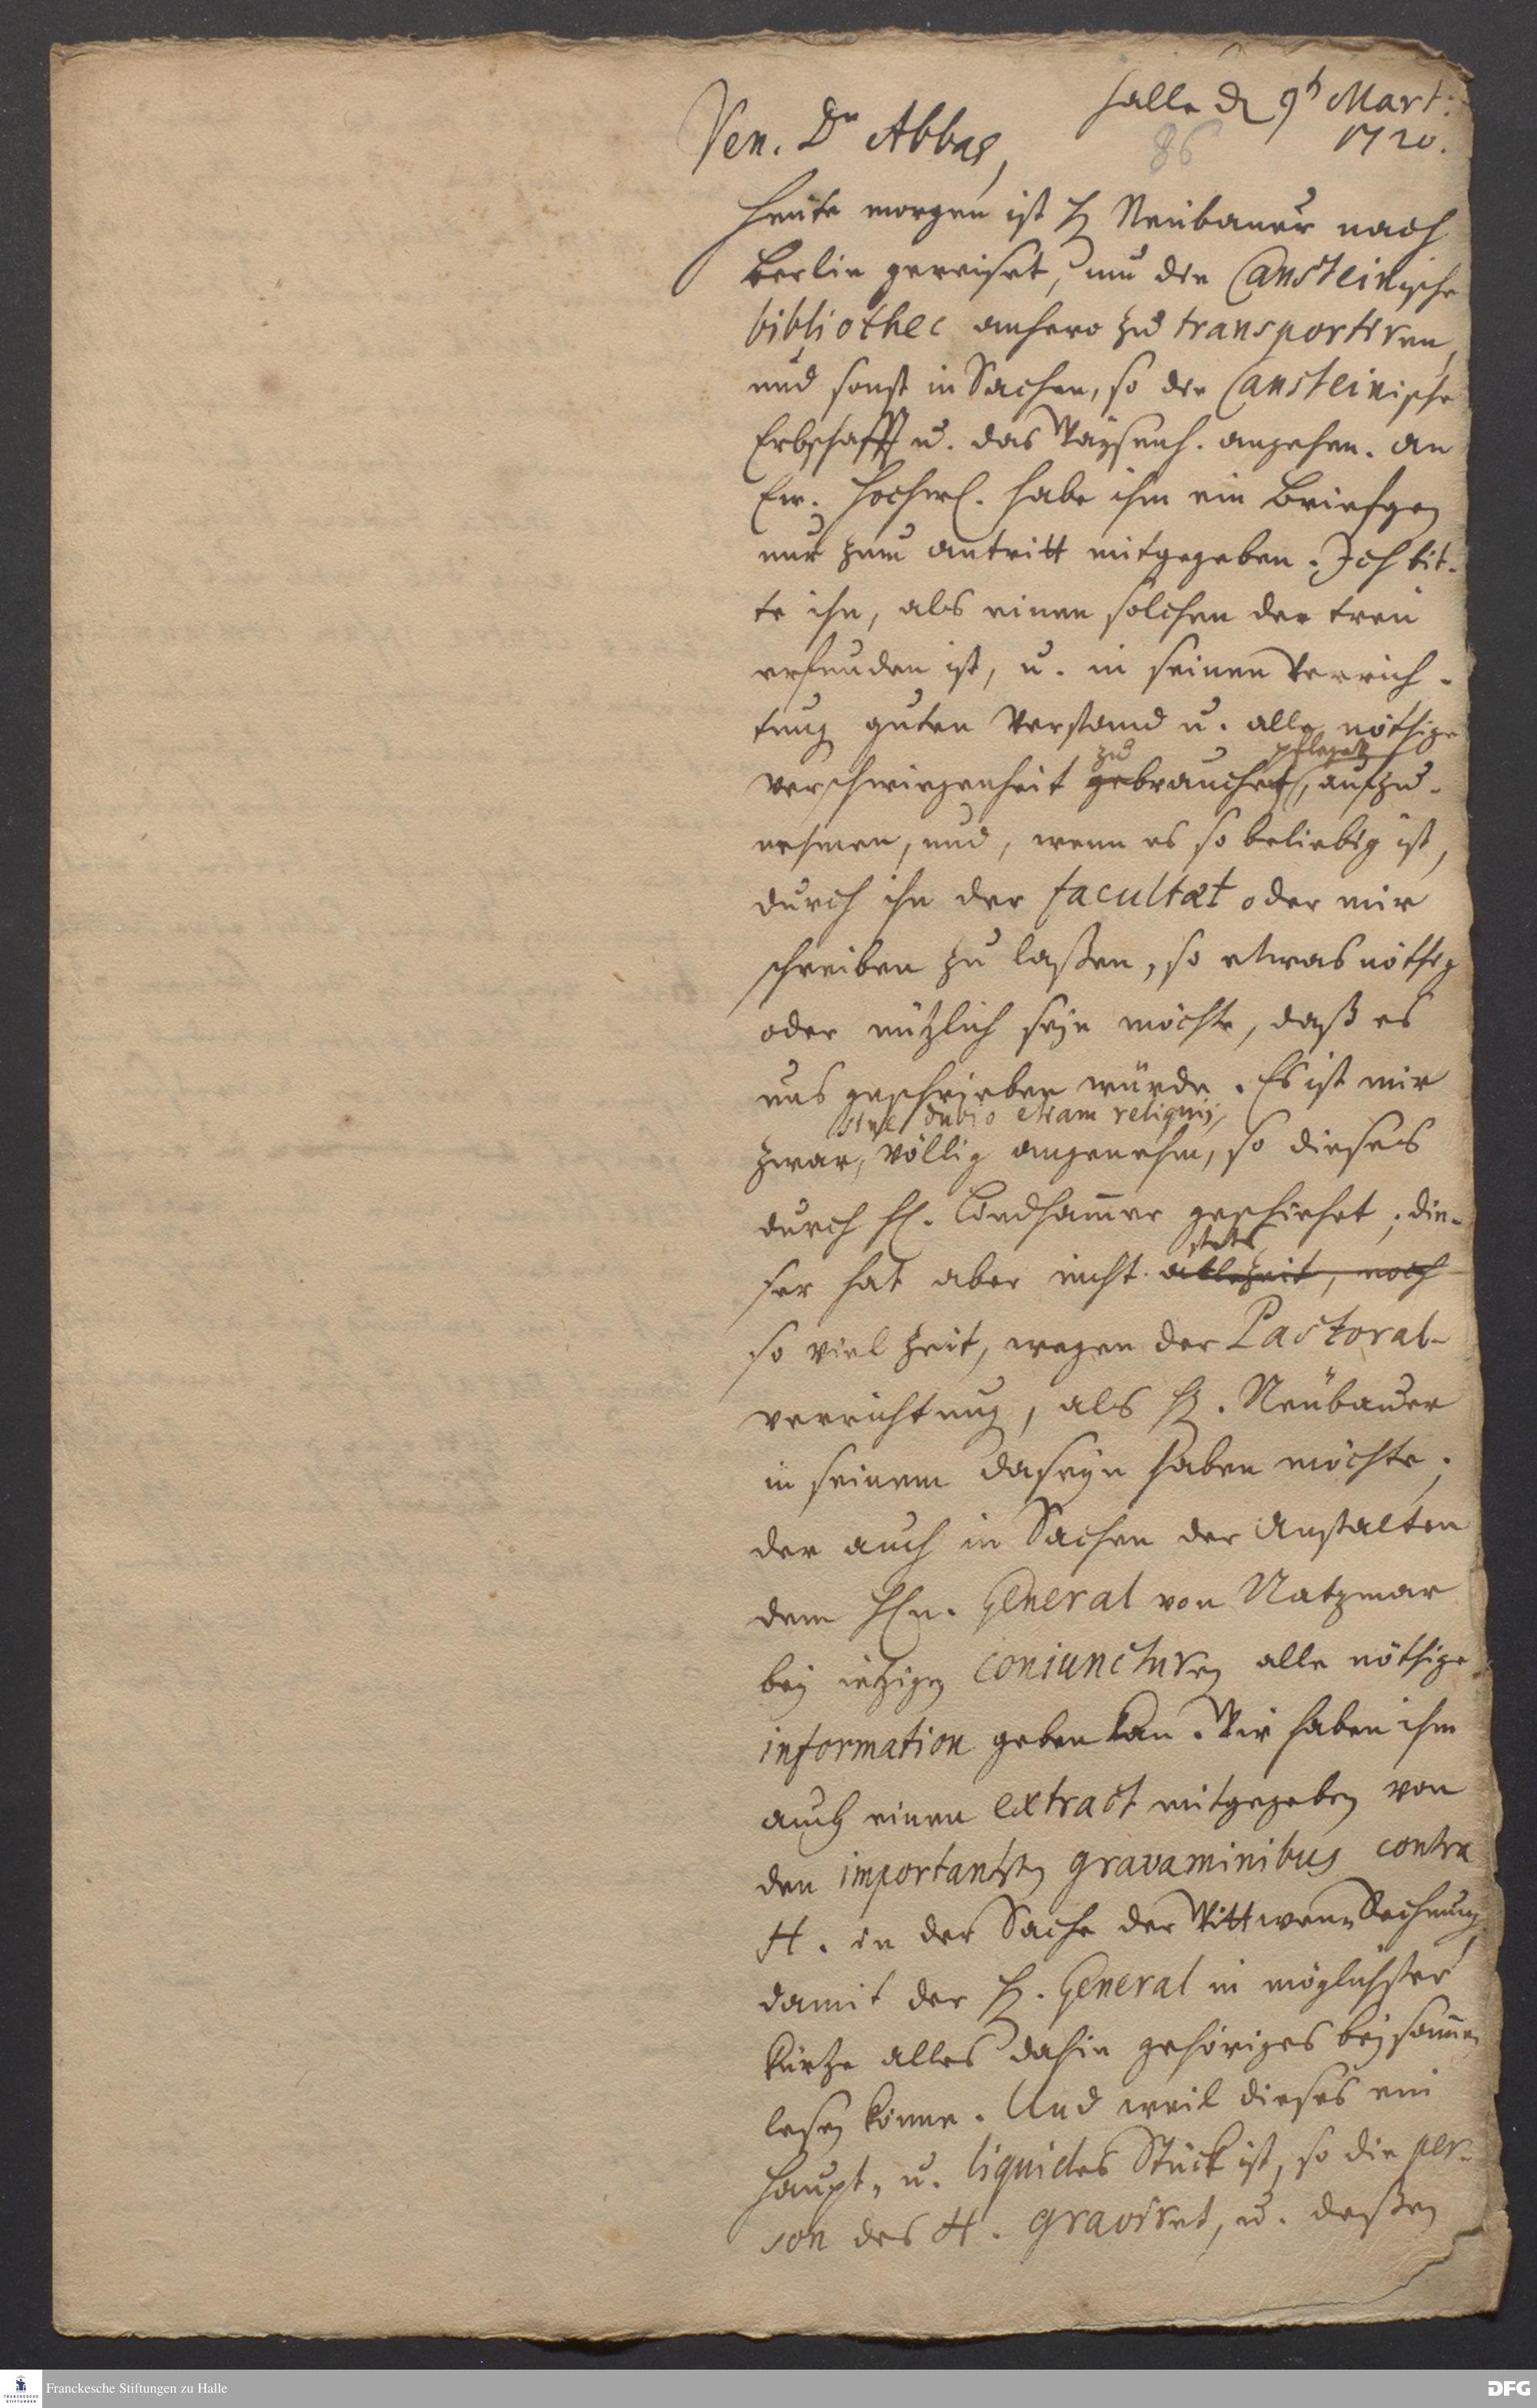 Halle d. 9t Mart:
1720.
Ven. Dn Abbas,
86
Heute morgen ist H Neubauer nach
Berlin gereiset, um die Cansteinische
bibliothec anhero zu transportiren,
und sonst in Sachen, so die Cansteinische
Erbschafft u. das Wäysenh. angehen. An
Ew. Hochw. habe ihm ein Briefgen
nur zum antritt mitgegeben. Ich bit-
te ihn, als einen solchen der treu
erfunden ist, u. in seinen Verrich-
tung guten Verstand u. alle nöthige
zu pfleget
verschwiegenheit gebrauchet, aufzu-
nehmen, und, wenn es so beliebig ist,
durch ihn der facultæt oder mir
schreiben zu laßen, so etwas nöthig
oder nützlich seyn möchte, daß es
uns geschrieben würde. Es ist mir
sine dubio etiam reliquis,
zwar, völlig angenehm, so dieses
durch H. Lindhamer geschiehet; die-
stets
ser hat aber nicht allezeit, noch
so viel Zeit, wegen der Pastoral-
verrichtung, als H. Neubauer
in seinem daseyn haben möchte;
der auch in Sachen der Anstalten
dem Hn. General von Natzmar
bey ietzigen coniuncturen alle nöthige
information geben kan. Wir haben ihm
auch einen extract mitgegeben von
den importantsten gravaminibus contra
H. in der Sache der Wittwen-Rechnung,
damit der H. General in möglichster
Kürtze alles dahin gehöriges beysammen
lesen könne. Und weil dieses ein
haupt- u. liquides Stück ist, so die per-
son des H. graviret, u. deßen
Franckesche Stiftungen zu Halle
DFG